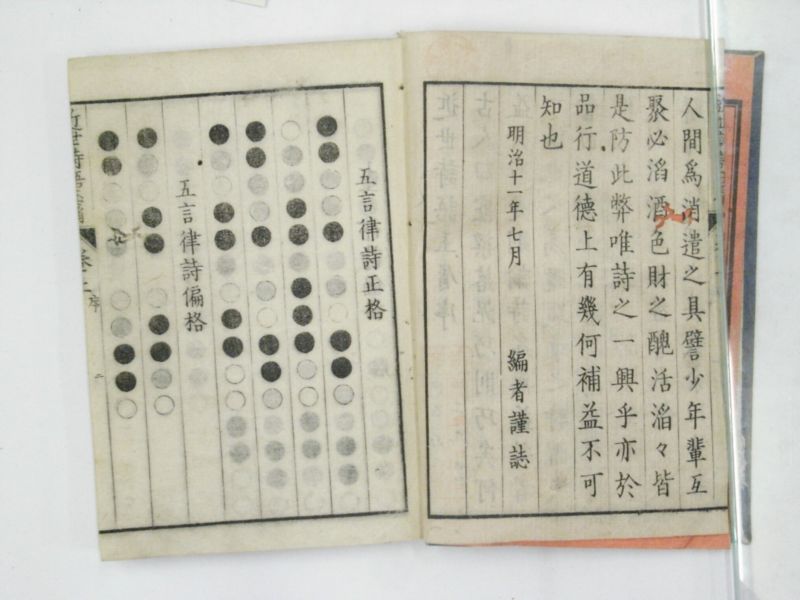 人間為消遣之具譬少年輩互
聚必滔酒色財之醜活滔々皆
是防此弊唯詩之一興乎亦於
品行道德上有幾何補益不可
知也
明治十一年七月
編者謹誌
五言律詩正格
五言律詩偏格
近世詩語
卷二 序
二